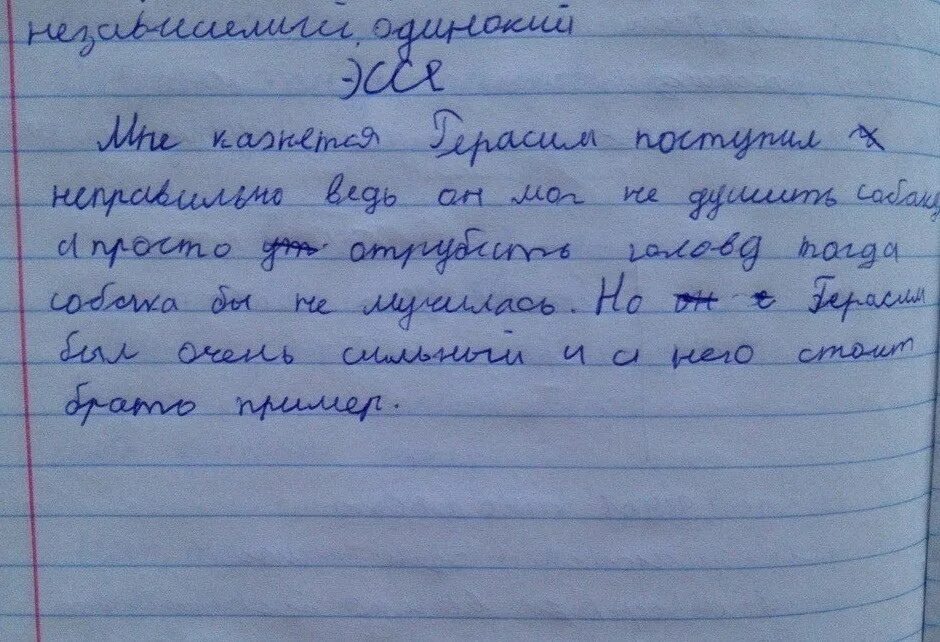 независимый, одинокий
Эссе
Мне кажется Герасим поступил
неправильно ведь он мог не душить собаку
а просто отрубить голову тогда
собачка бы не мучилась. Но Герасим
был очень сильный и с него стоит
брать пример.